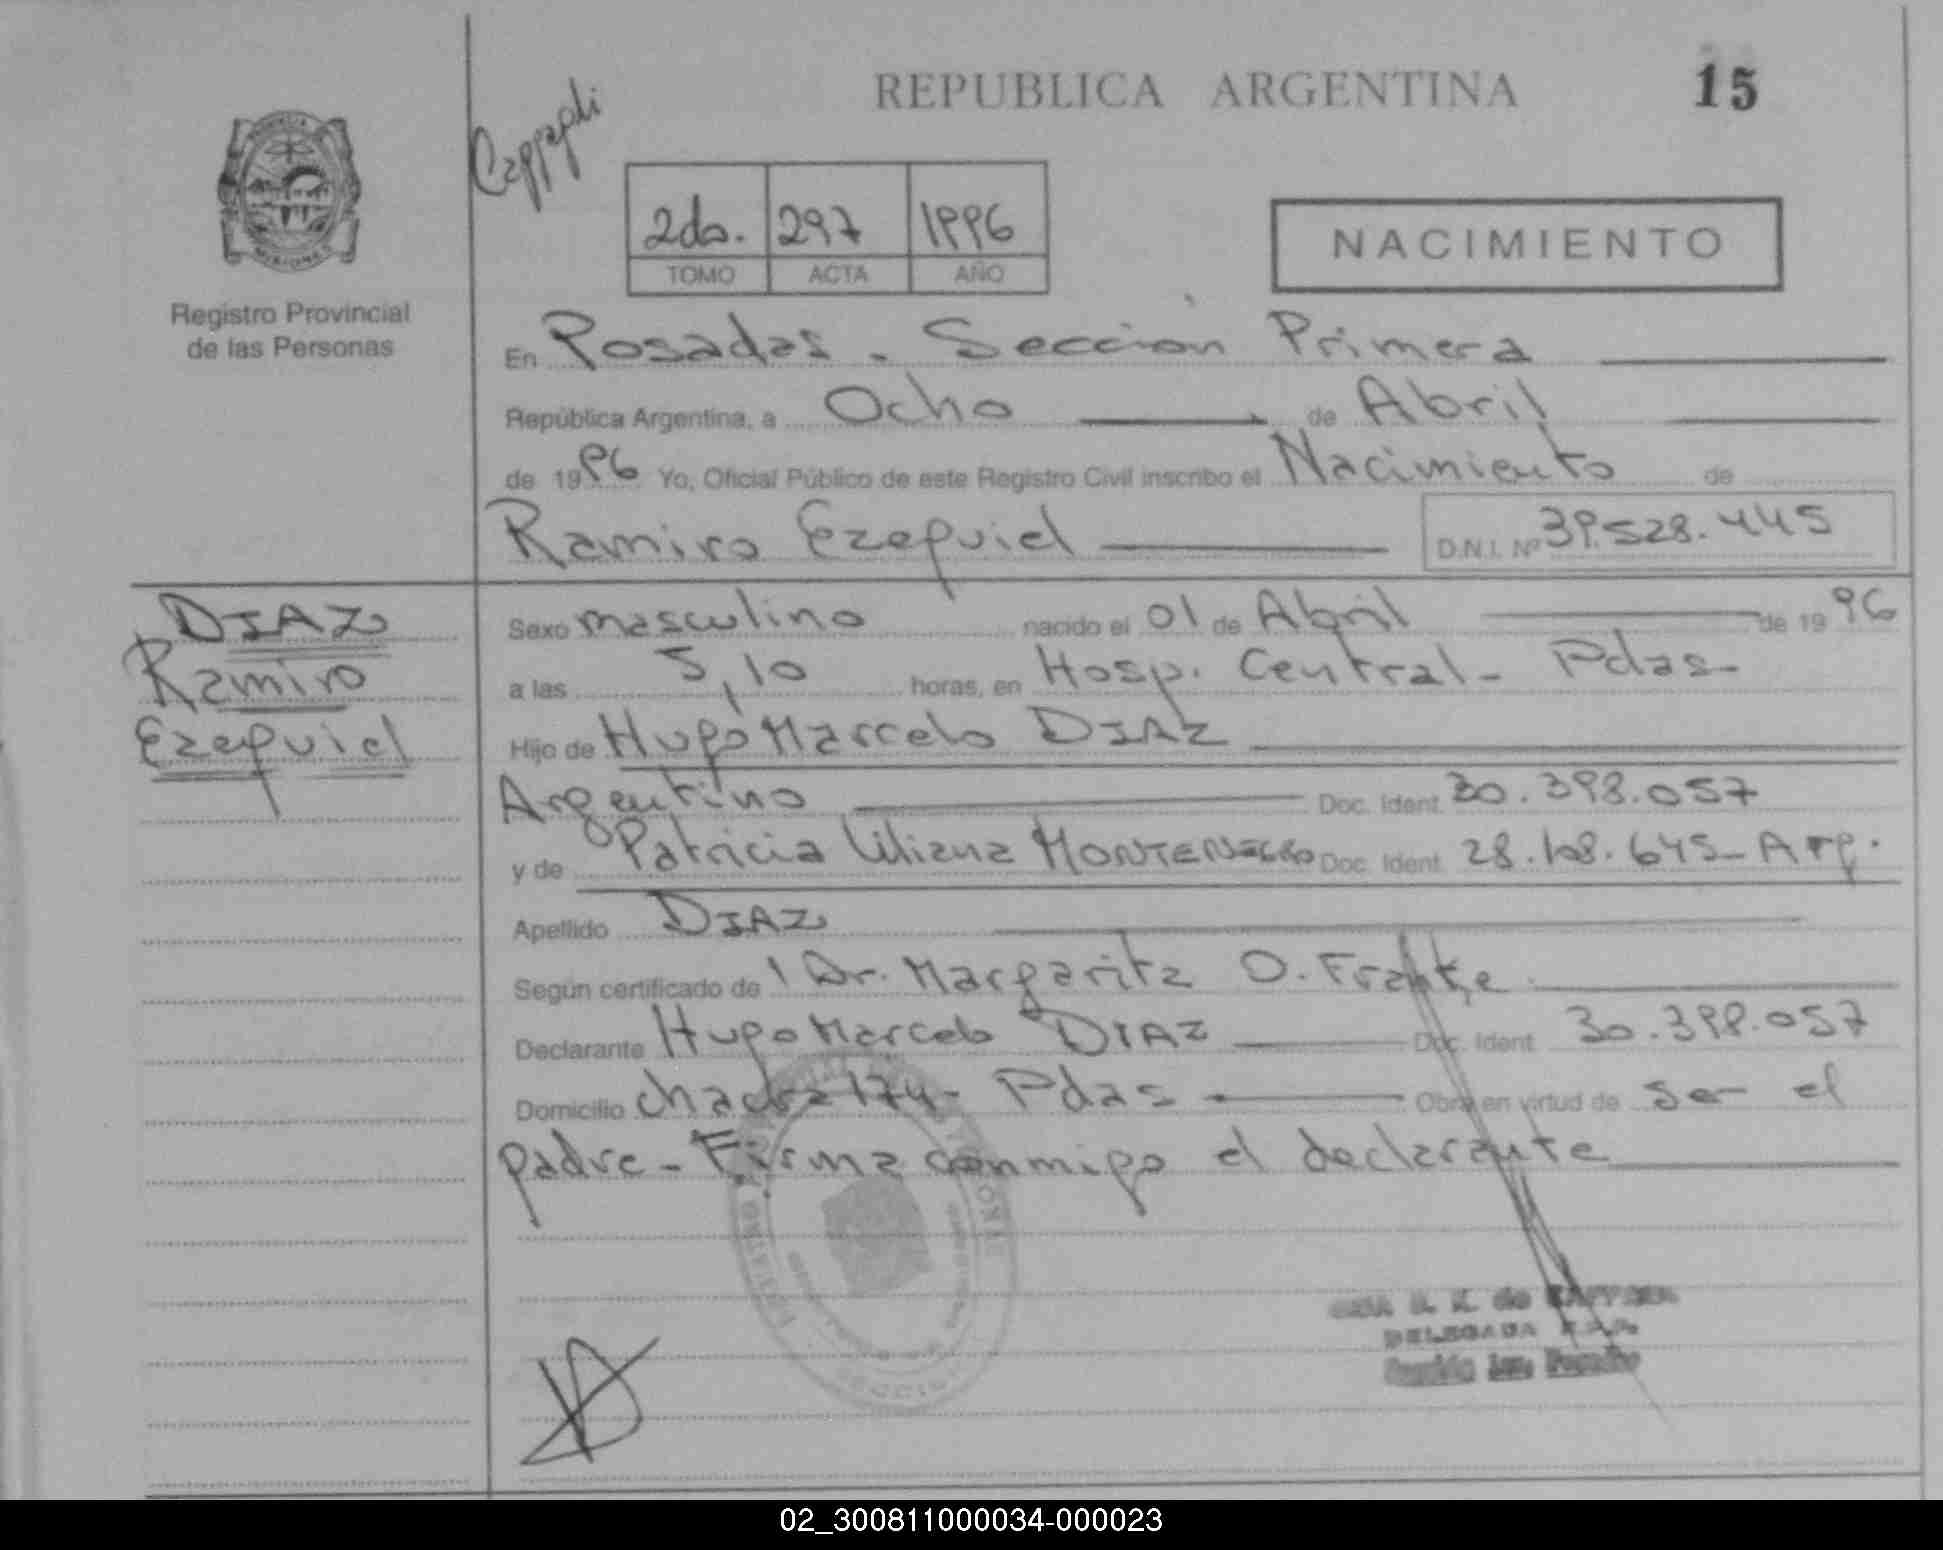 REPUBLICA ARGENTINA 15
2do. 297 1996
TOMO ACTA AÑO
NACIMIENTO
Registro Provincial
de las Personas
En Posadas. Sección Primera
República Argentina, a Ocho de Abril
de 1996 Yo, Oficial Público de este Registro Civil inscribo el Nacimiento de
Ramiro Ezequiel D.N.I. Nº 39.528.445
DIAZ
Ramiro
Ezequiel
Sexo masculino nacido el 01 de Abril de 1996
a las 5,10 horas, en Hosp. Central - Pdas-
Hijo de Hugo Marcelo DIAZ
Argentino Doc. Ident. 30.398.057
y de Patricia Liliana MONTENEGRO Doc. Ident. 645- Arg.
Apellido DIAZ
Según certificado de Dr. Margarita O. Franke
Declarante Hugo Marcelo DIAZ Doc. Ident. 30.398.057
Domicilio chacra 174- Pdas Obra en virtud de ser el
padre - Firma conmigo el declarante
DELEGADA
02_300811000034-000023